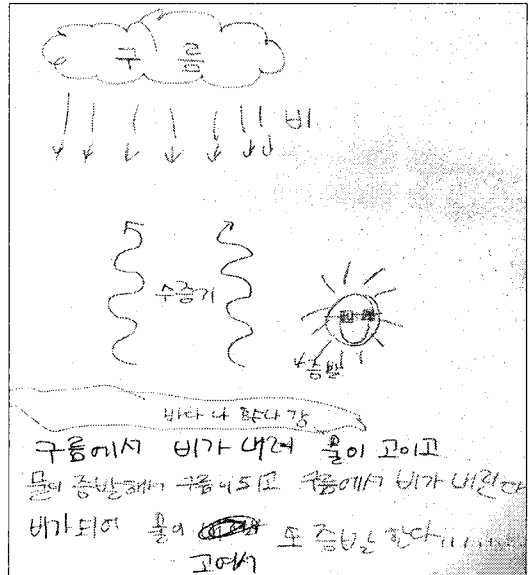 구름
비
수증기
증발
바다나 강
구름에서 비가 내려 물이 고이고
물이 증발해서 구름이 되고 구름에서 비가 내린다
비가 되어 물이 고여서 또 증발 한다